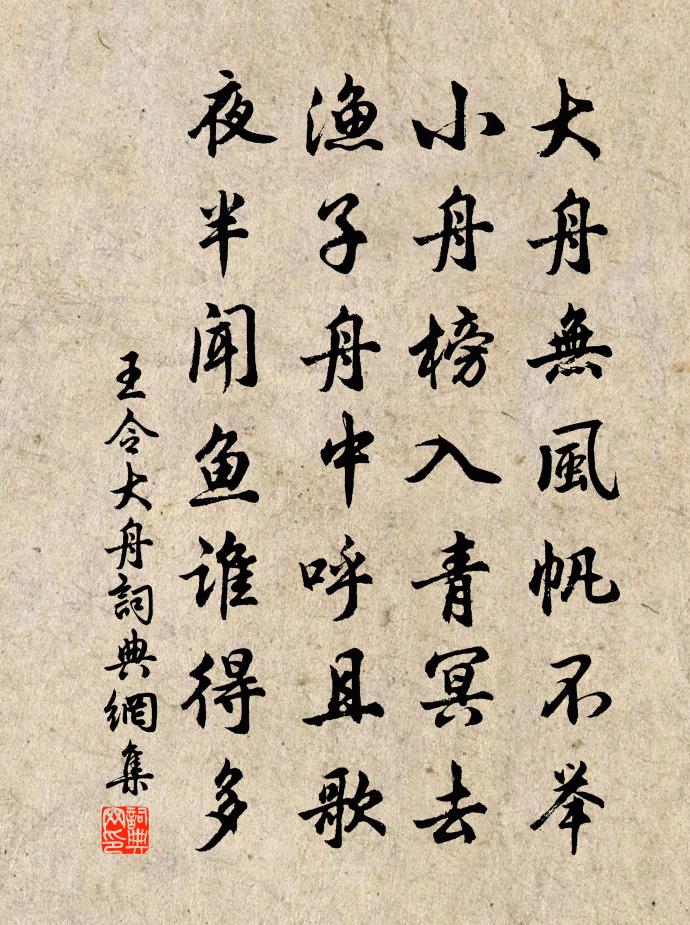 大舟無風帆不举
小舟榜入青冥去
渔子舟中呼且歌
夜半闻鱼谁得多
王令大舟詞典網集
詞典网印